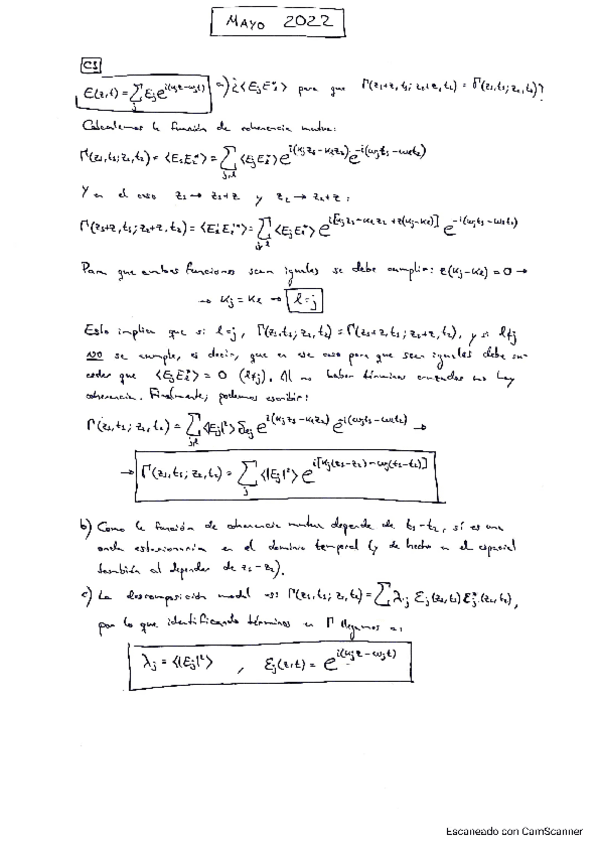 MAYO 2022
C1
E(z,t) = ∑_j E_j e^{i(k_j z - ω_j t)} a) ¿⟨E_j E_l*⟩ para que Γ(z₁+z, t₁; z₂+z, t₂) = Γ(z₁,t₁; z₂,t₂)?
Calculemos la función de coherencia mutua:
Γ(z₁,t₁; z₂,t₂) = ⟨E₁E₂*⟩ = ∑_{j,l} ⟨E_j E_l*⟩ e^{i(k_j z₁ - k_l z₂)} e^{-i(ω_j t₁ - ω_l t₂)}
Y en el caso z₁ → z₁+z y z₂ → z₂+z :
Γ(z₁+z, t₁; z₂+z, t₂) = ∑_{j,l} ⟨E_j E_l*⟩ e^{i[k_j z₁ - k_l z₂ + z(k_j - k_l)]} e^{-i(ω_j t₁ - ω_l t₂)}
Para que ambas funciones sean iguales se debe cumplir: z(k_j - k_l) = 0 →
→ k_j = k_l → l = j
Esto implica que si l=j, Γ(z₁,t₁; z₂,t₂) = Γ(z₁+z,t₁; z₂+z,t₂), y si l≠j
no se cumple, es decir, que en ese caso para que sean iguales debe su-
ceder que ⟨E_j E_l*⟩ = 0 (l≠j). Al no haber términos cruzados no hay
coherencia. Finalmente, podemos escribir:
Γ(z₁,t₁; z₂,t₂) = ∑_{j,l} ⟨|E_j|²⟩ δ_{lj} e^{i(k_j z₁ - k_l z₂)} e^{i(ω_j t₁ - ω_l t₂)} →
→ Γ(z₁,t₁; z₂,t₂) = ∑_j ⟨|E_j|²⟩ e^{i[k_j(z₁-z₂) - ω_j(t₁-t₂)]}
b) Como la función de coherencia mutua depende de t₁-t₂, sí es una
onda estacionaria en el dominio temporal (y de hecho en el espacial
también al depender de z₁-z₂).
c) La descomposición modal es: Γ(z₁,t₁; z₂,t₂) = ∑ λ_j ℰ_j(z₁,t₁) ℰ_j*(z₂,t₂),
por lo que identificando términos en Γ llegamos a:
λ_j = ⟨|E_j|²⟩ , ℰ_j(z,t) = e^{i(k_j z - ω_j t)}
Escaneado con CamScanner